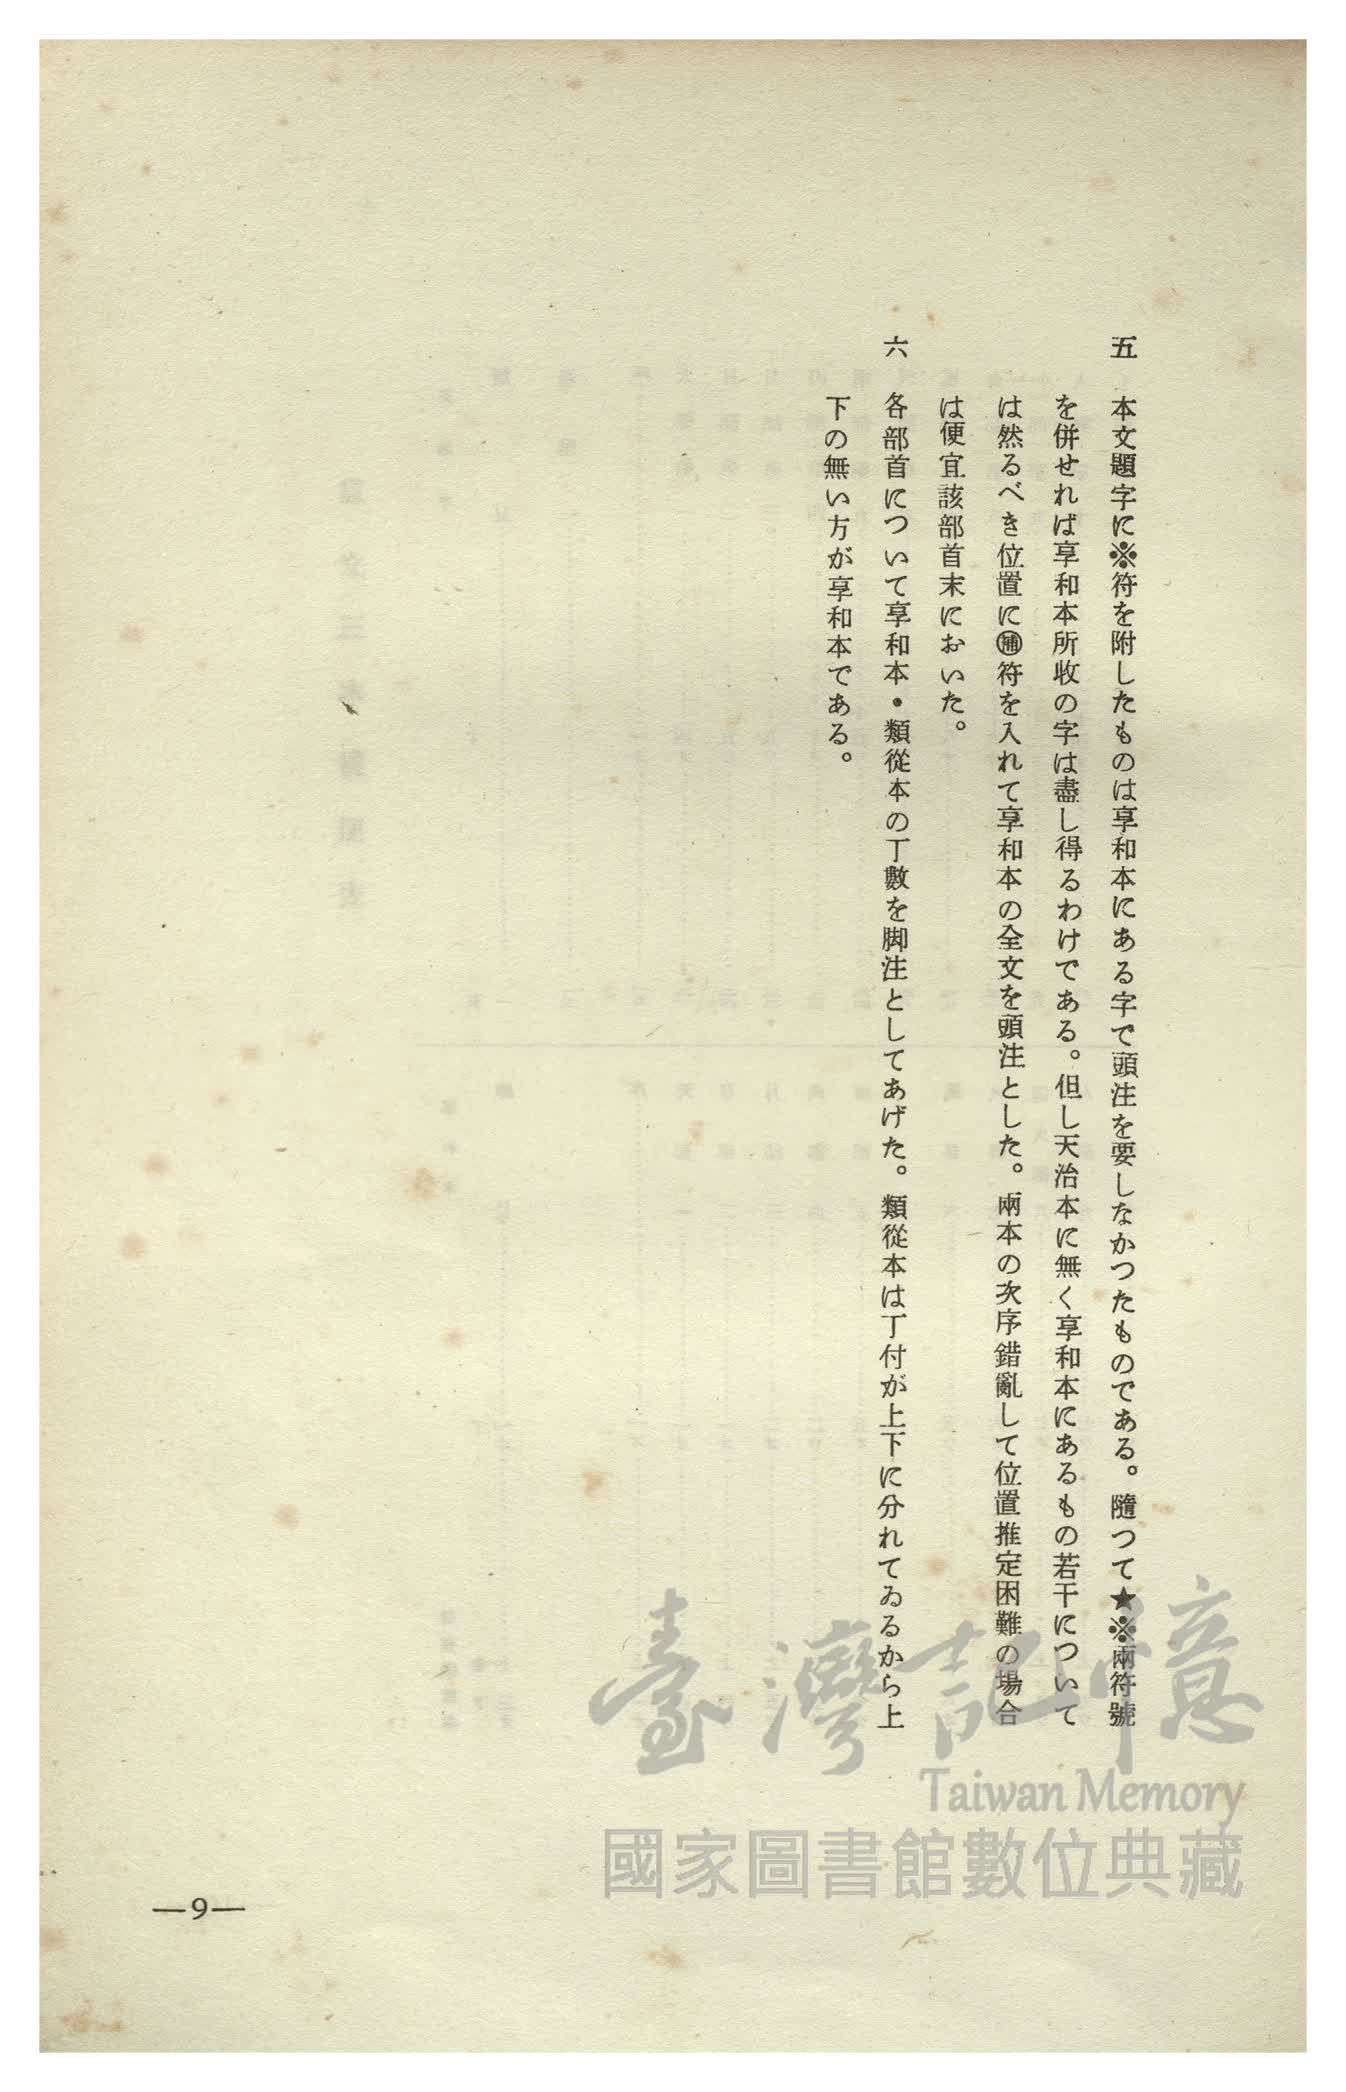 五　本文題字に※符を附したものは享和本にある字で頭注を要しなかつたものである。隨つて★※兩符號
を併せれば享和本所收の字は盡し得るわけである。但し天治本に無く享和本にあるもの若干について
は然るべき位置に㊜符を入れて享和本の全文を頭注とした。兩本の次序錯亂して位置推定困難の場合
は便宜該部首末においた。
六　各部首について享和本・類從本の丁數を脚注としてあげた。類從本は丁付が上下に分れてゐるから上
下の無い方が享和本である。
—9—
臺灣記憶
Taiwan Memory
國家圖書館數位典藏